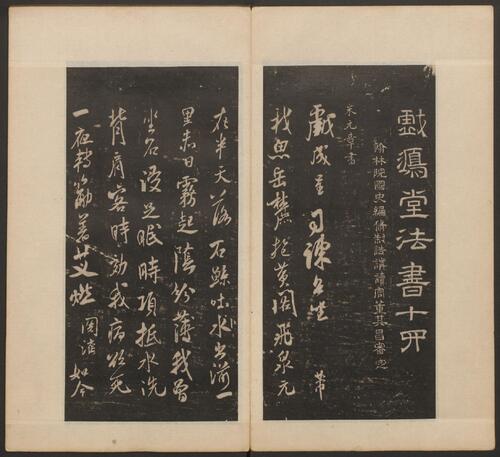 戲鴻堂法書十四
翰林院國史編脩制誥講讀官董其昌審定
米元章書
戲成呈 司諫台坐 芾
我思岳麓抱黃閣飛泉元
在半天落石鯨吐水出湔一
里赤日霧起陰紛薄我曾
坐石浸足眠時項抵水洗
背肩客時効我病欲死
一夜轉筋著艾燃 關湞 如今